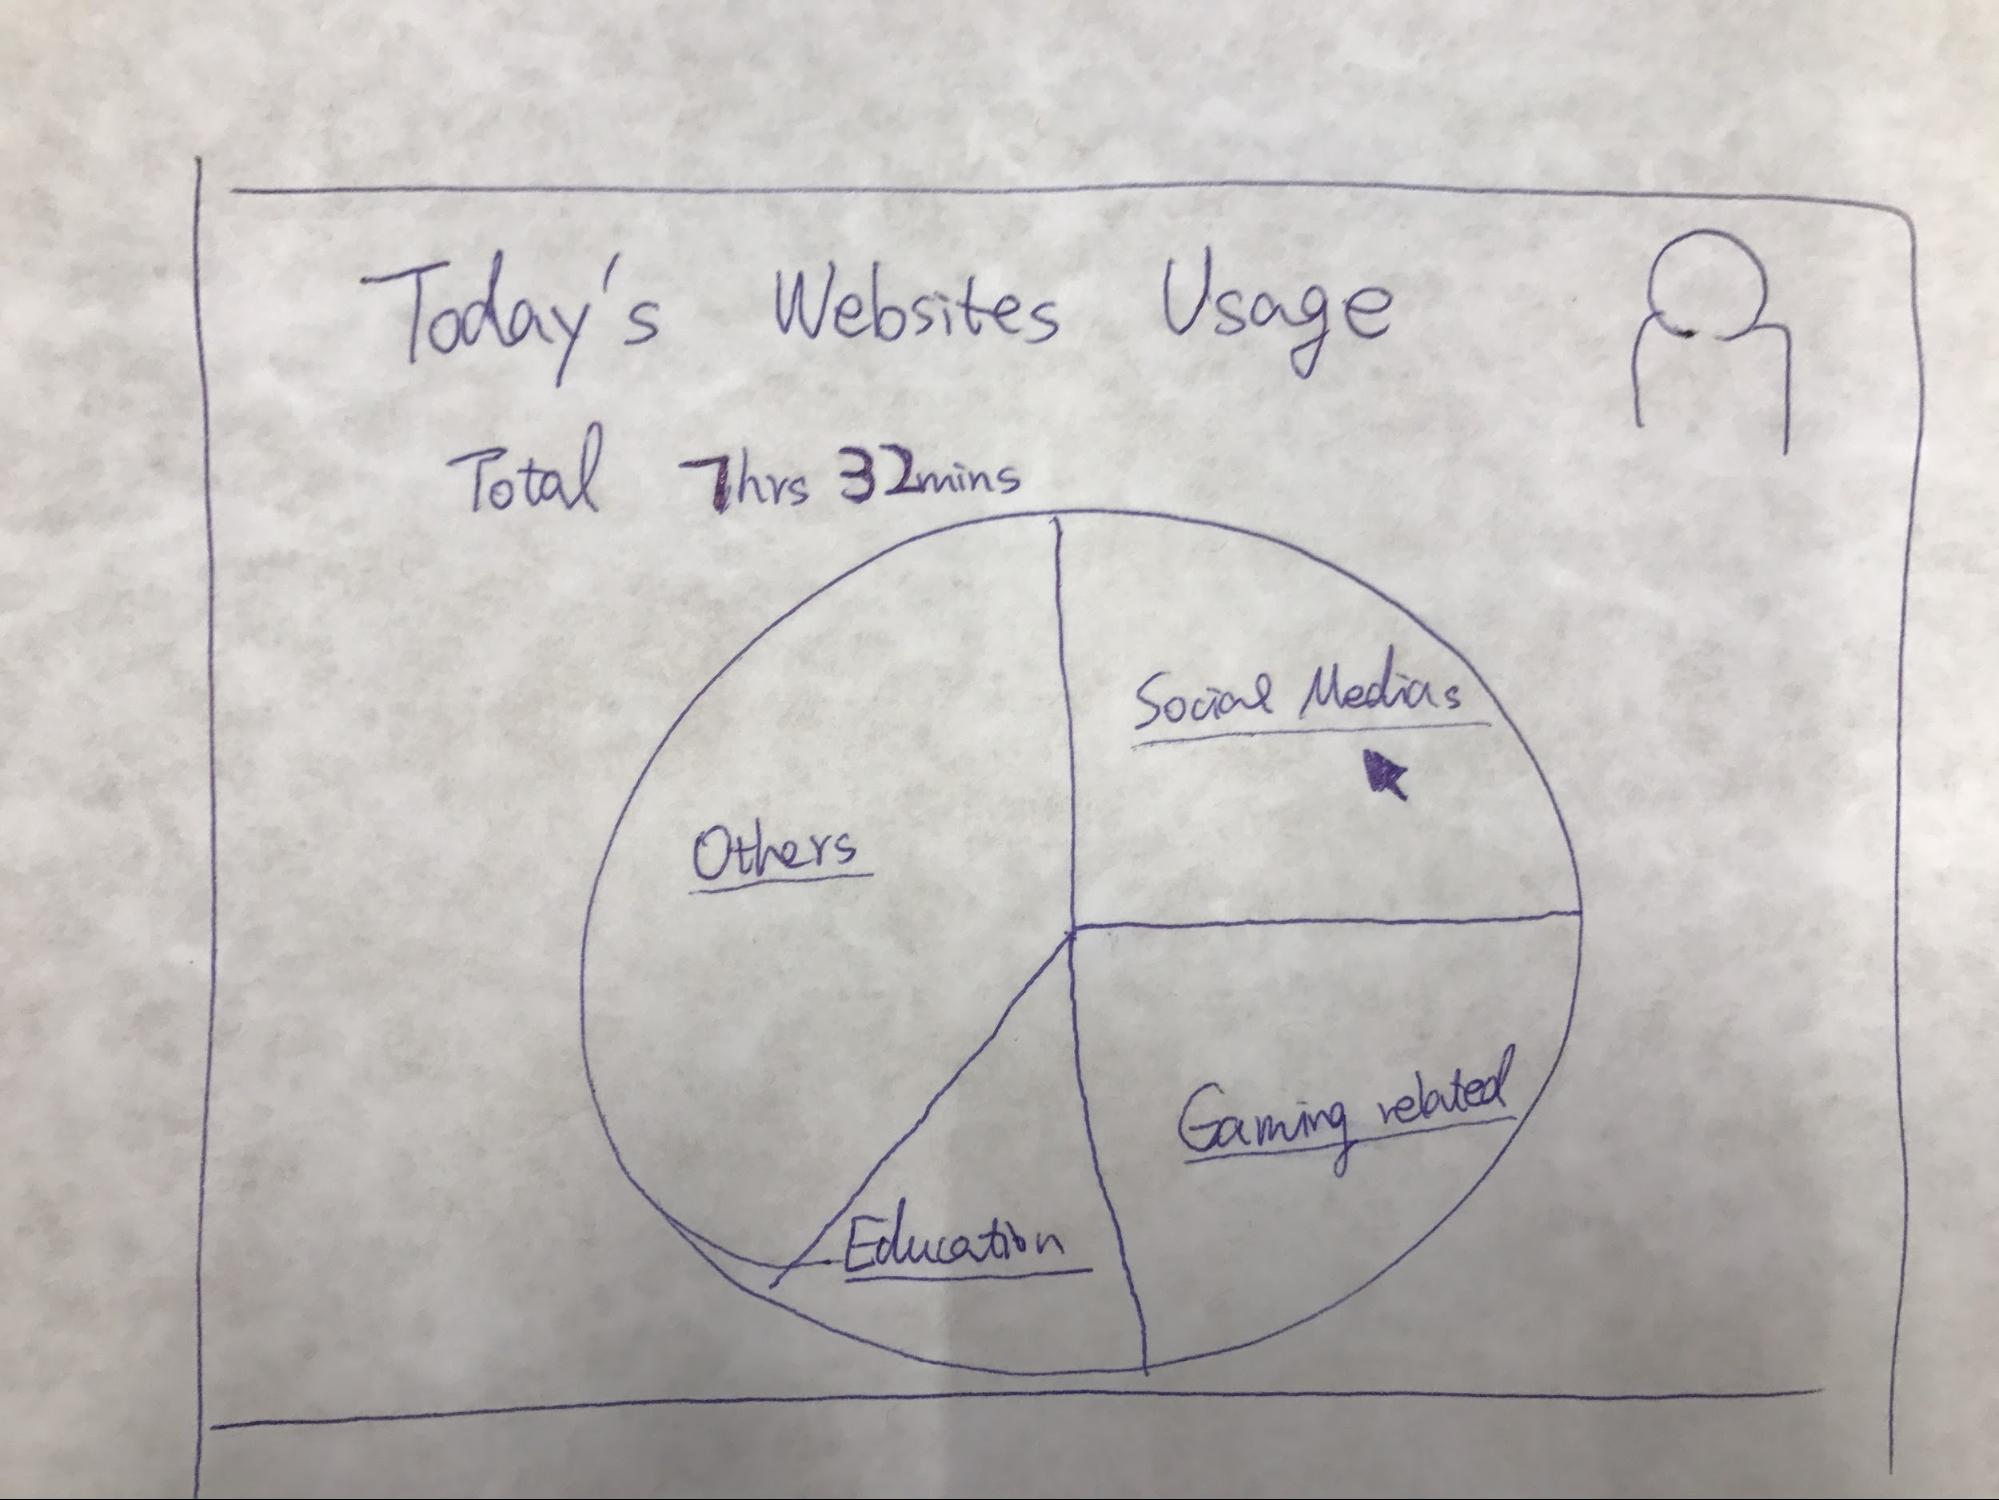 Today's Websites Usage
Total 7hrs 32mins
Social Medias
Others
Gaming related
Education